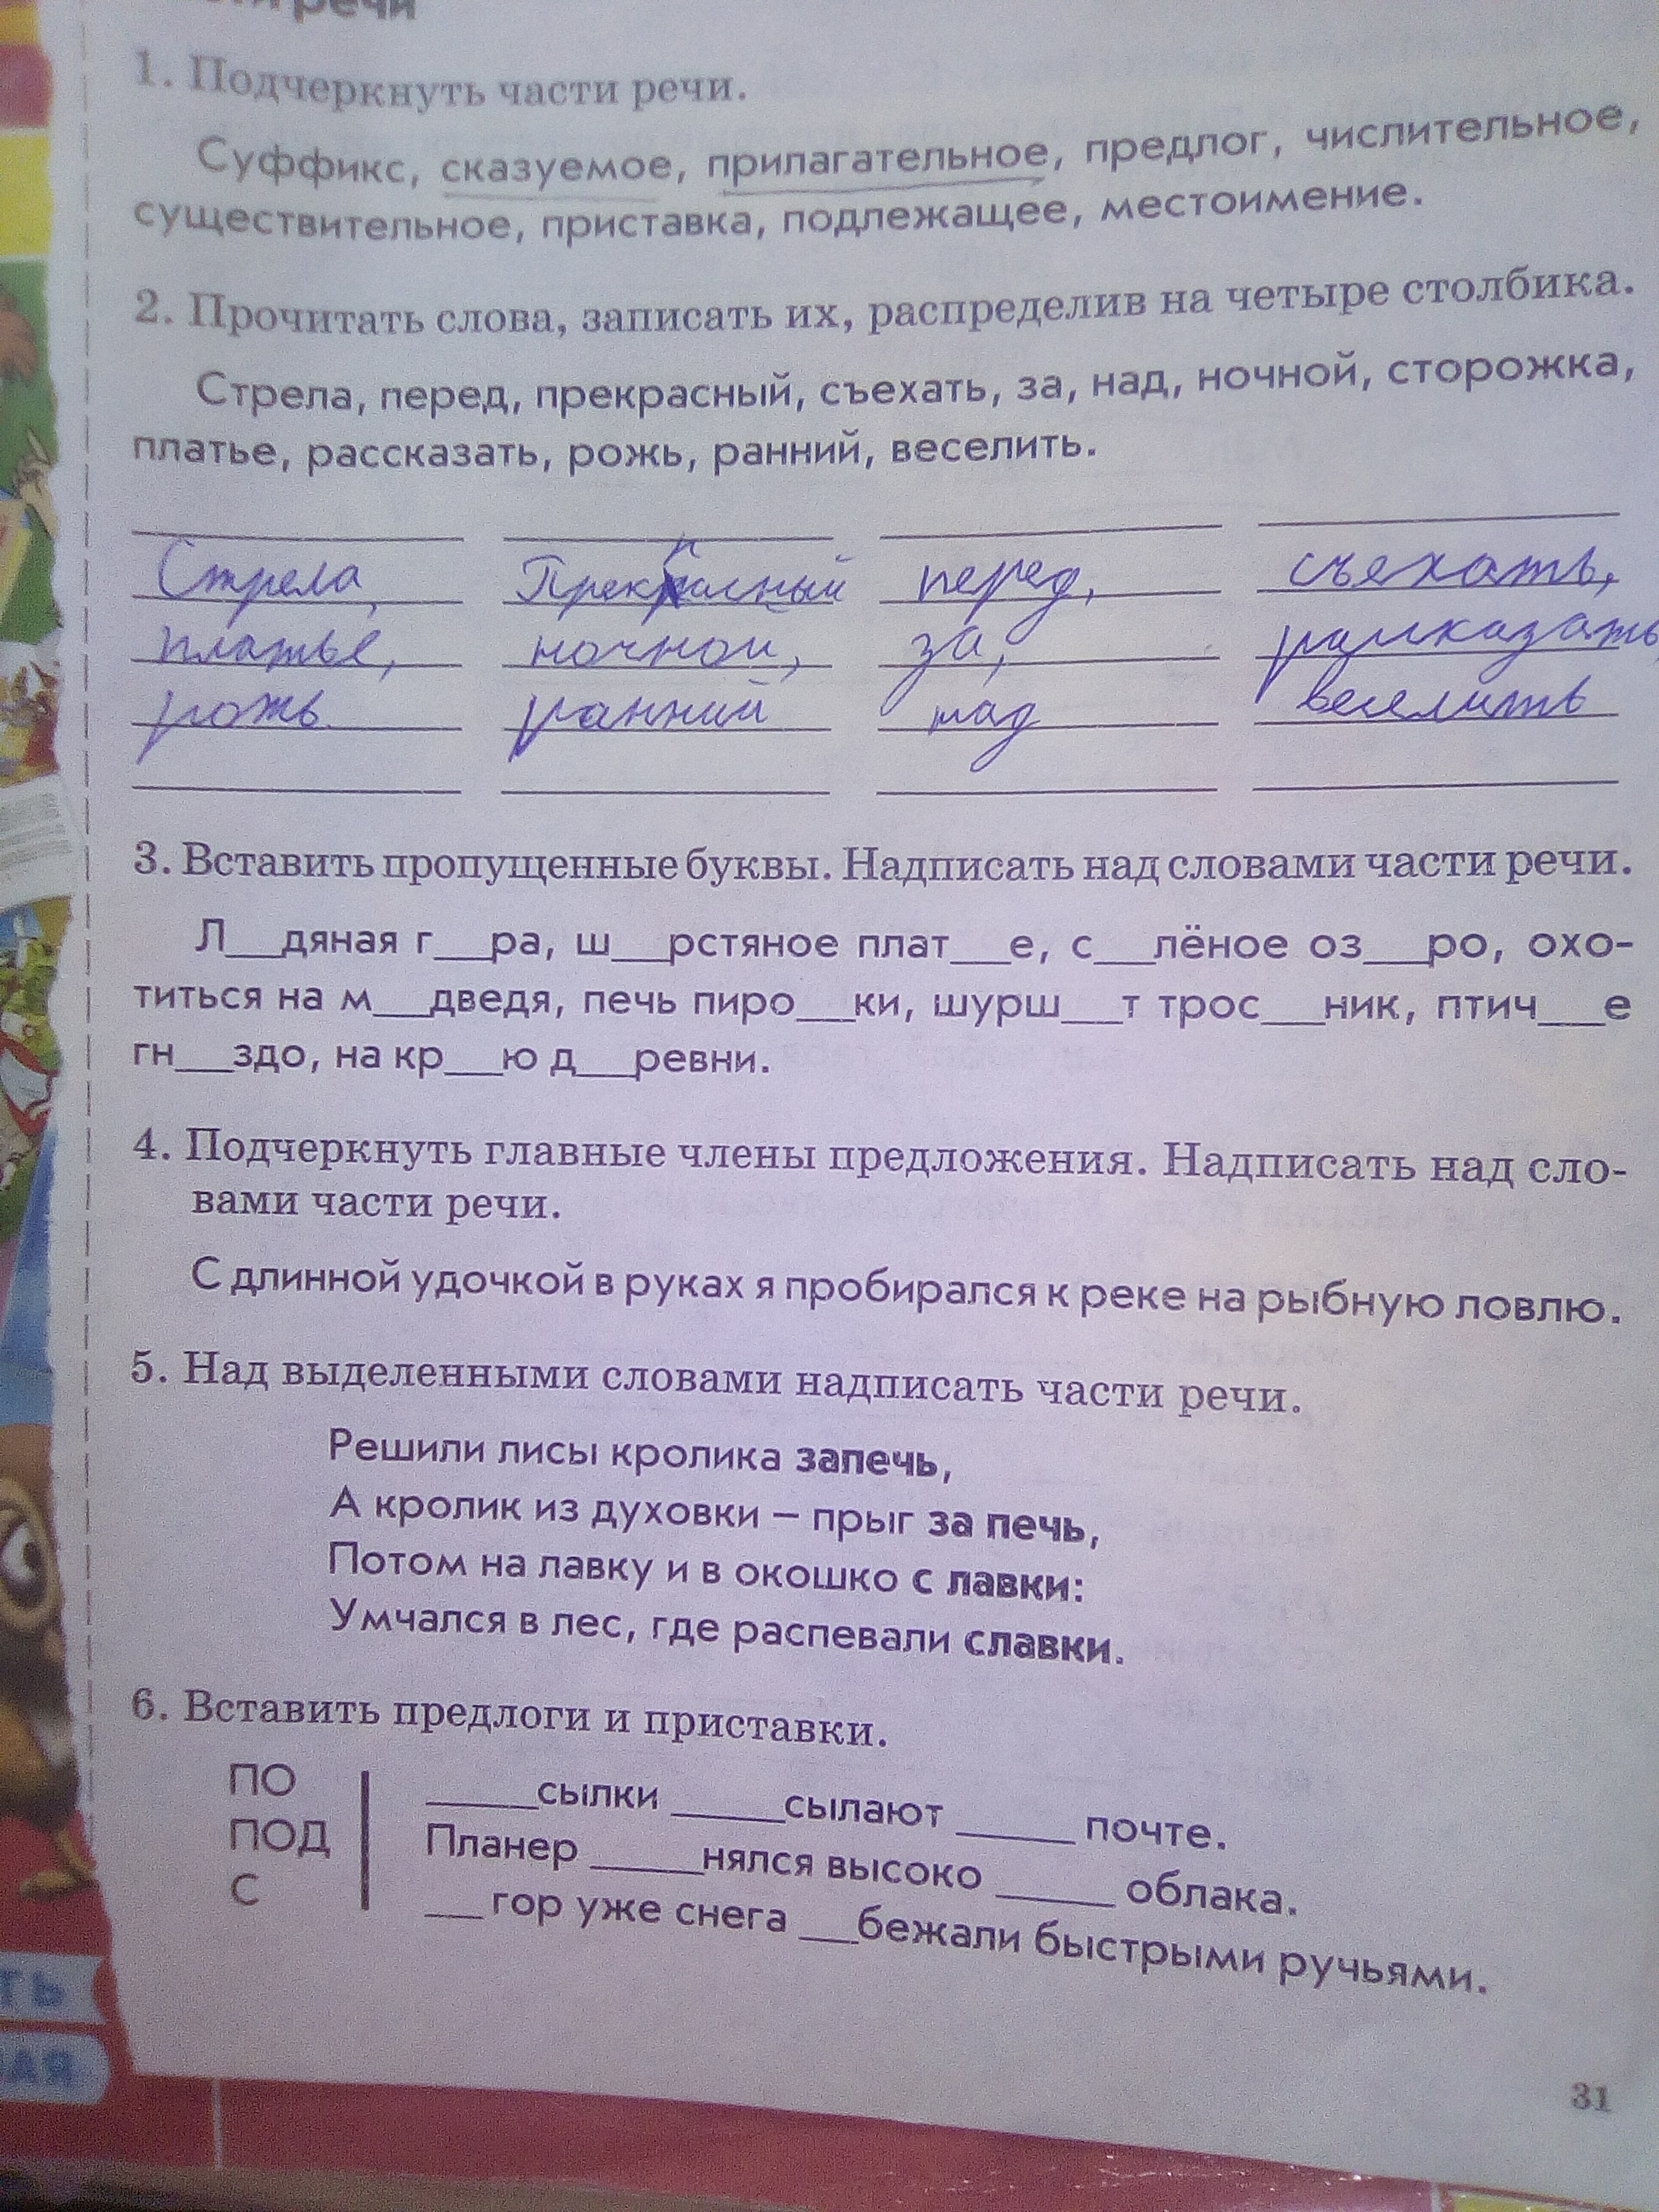 речи
1. Подчеркнуть части речи.
Суффикс, сказуемое, прилагательное, предлог, числительное,
существительное, приставка, подлежащее, местоимение.
2. Прочитать слова, записать их, распределив на четыре столбика.
Стрела, перед, прекрасный, съехать, за, над, ночной, сторожка,
платье, рассказать, рожь, ранний, веселить.
Стрела, Прекрасный перед, съехать,
платье, ночной, за, рассказать,
рожь ранний над веселить
3. Вставить пропущенные буквы. Надписать над словами части речи.
Л__дяная г__ра, ш__рстяное плат__е, с__лёное оз__ро, охо-
титься на м__дведя, печь пиро__ки, шурш__т трос__ник, птич__е
гн__здо, на кр__ю д__ревни.
4. Подчеркнуть главные члены предложения. Надписать над сло-
вами части речи.
С длинной удочкой в руках я пробирался к реке на рыбную ловлю.
5. Над выделенными словами надписать части речи.
Решили лисы кролика запечь,
А кролик из духовки – прыг за печь,
Потом на лавку и в окошко с лавки:
Умчался в лес, где распевали славки.
6. Вставить предлоги и приставки.
ПО
ПОД
С
____сылки ____сылают ____ почте.
Планер ____нялся высоко ____ облака.
__ гор уже снега __бежали быстрыми ручьями.
ТЬ
АЯ
31